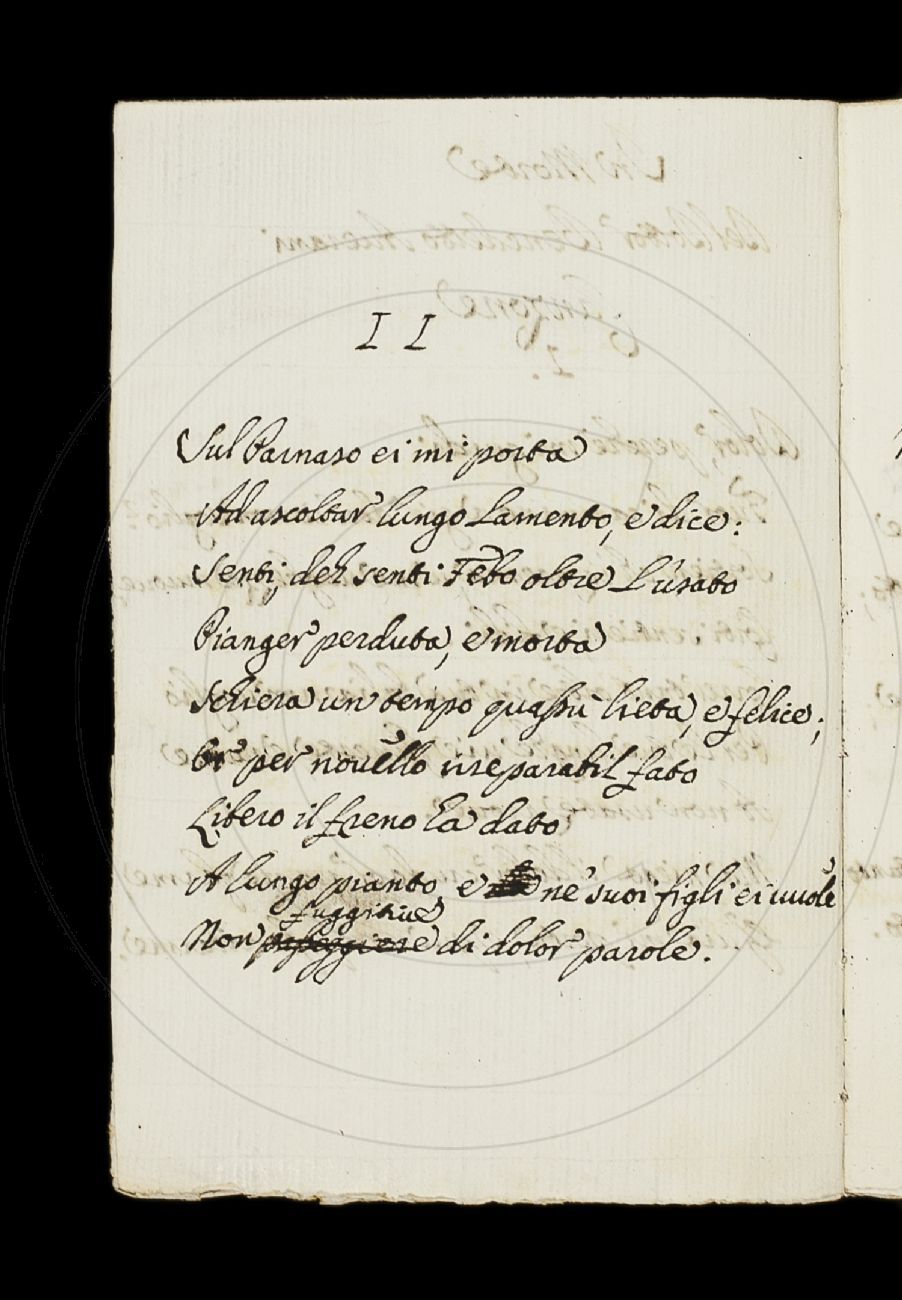 I I
Sul Parnaso ei mi porta
Ad ascoltar lungo Lamento, e dice:
Senti, deh senti Febo oltre L'usato
Pianger perduta, e morta
Schiera un tempo quassù lieta, e felice;
Or per novello irreparabil fato
Libero il freno ha dato
A lungo pianto, e ne' suoi figli ei vuole
fuggitive
Non di dolor parole.